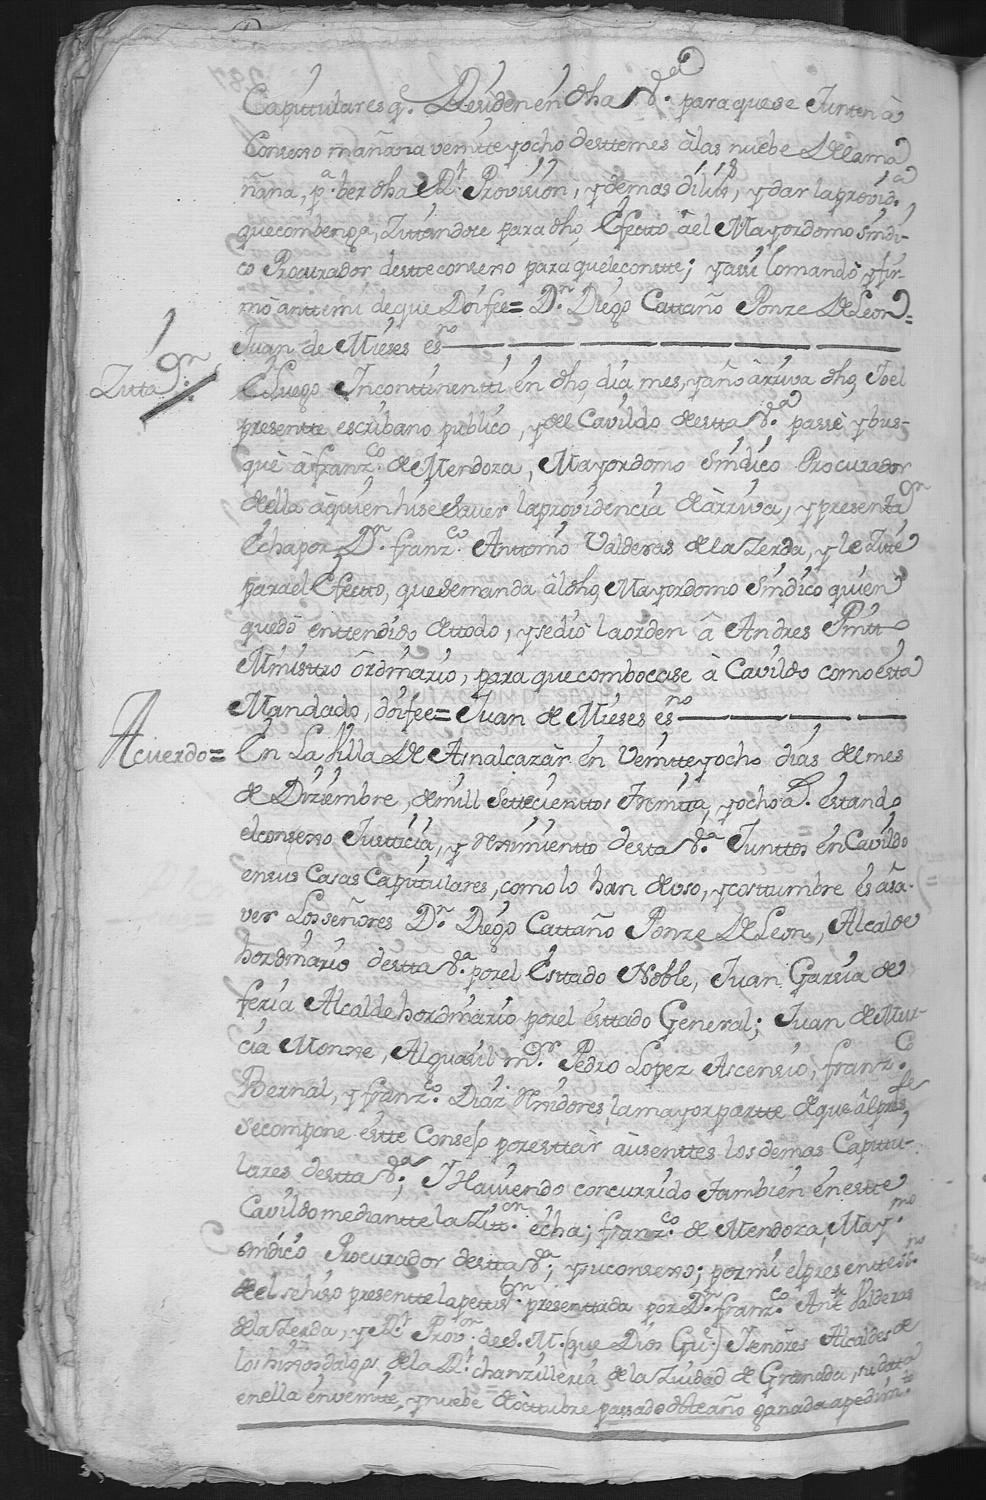 Capitulares q.e Residen en dha V.a para que se Junten à
Consexo mañana veintte y ocho desttemes à las nuebe De la ma
ñana, p.a ber dha R.l Provision, y demas dilix.s, y dar la provid.a
que combenga, Zittandose para dho Efecto àel Mayordomo Sindi-
co Procurador destte consexo para que le constte; y assi lo mando y fir-
mò antte mi de que Doi fee= D.n Diego Cattaño Ponze De Leon=
Juan de Mieses es.no
Zitta.on
E luego Incontinentti en dho dia mes, y año arriva dho, Io el
presentte escribano publico, y del Cavildo destta V.a passè y bus-
què à fran.co de Mendoza, Mayordomo Sindico Procurador
della à quien hise Saver la providencia de àrriva, y presenta.on
Echa por D.n fran.co Anttonio Valderas de la Zerda, y le Zité
para el Efectto, que se manda àl dho Mayordomo Sindico quien
quedò enttendido de ttodo, y se diò la orden â Andres Pintt
Ministro ôrdinario, para que combocase à Cavildo como està
Mandado, doi fee= Juan de Mieses es.no
Acuerdo=
En La Villa De Asnalcazàr en Veintte y ocho dias del mes
de Diziembre, de mill Settecienttos Treintta, y ocho a.s estando
el consexo Justticia, y reximientto desta V.a Junttos en Cavildo
en sus Casas Capitulares, como lo han de uso, y costtumbre es à sa-
ver Los señores D.n Diego Cattaño Ponze De Leon, Alcalde
hordinario destta V.a por el Esttado Noble, Juan Garcia de
feria Alcalde hordinario por el esttado General; Juan de Mur-
cia Monxe, Alguasil m.or Pedro Lopez Ascensio, fran.co
Bernal, y fran.co Diaz Rexidores, la mayor partte de que âl pres.te
se compone estte Consejo por esttàr àusenttes los demas Capittu-
lares destta V.a; I Haviendo concurrido tambien en estte
Cavildo mediantte la Zitt.on echa; fran.co de Mendoza, May.mo
sindico Procurador destta V.a, y su consexo; por mi el presentte es.no
de el se hiso presentte la petiz.on presenttada por D.n fran.co Ant.o Valderas
de la Zerda, y R.l Prov.on de S. M. (que Dios Gu.e) Y señores Alcaldes de
los hixosdalgos, de la R.l chanzilleria de la Ziudad de Granada, su data
en ella en veintte, y nuebe de octtubre passado deste año ganada a pedim.to